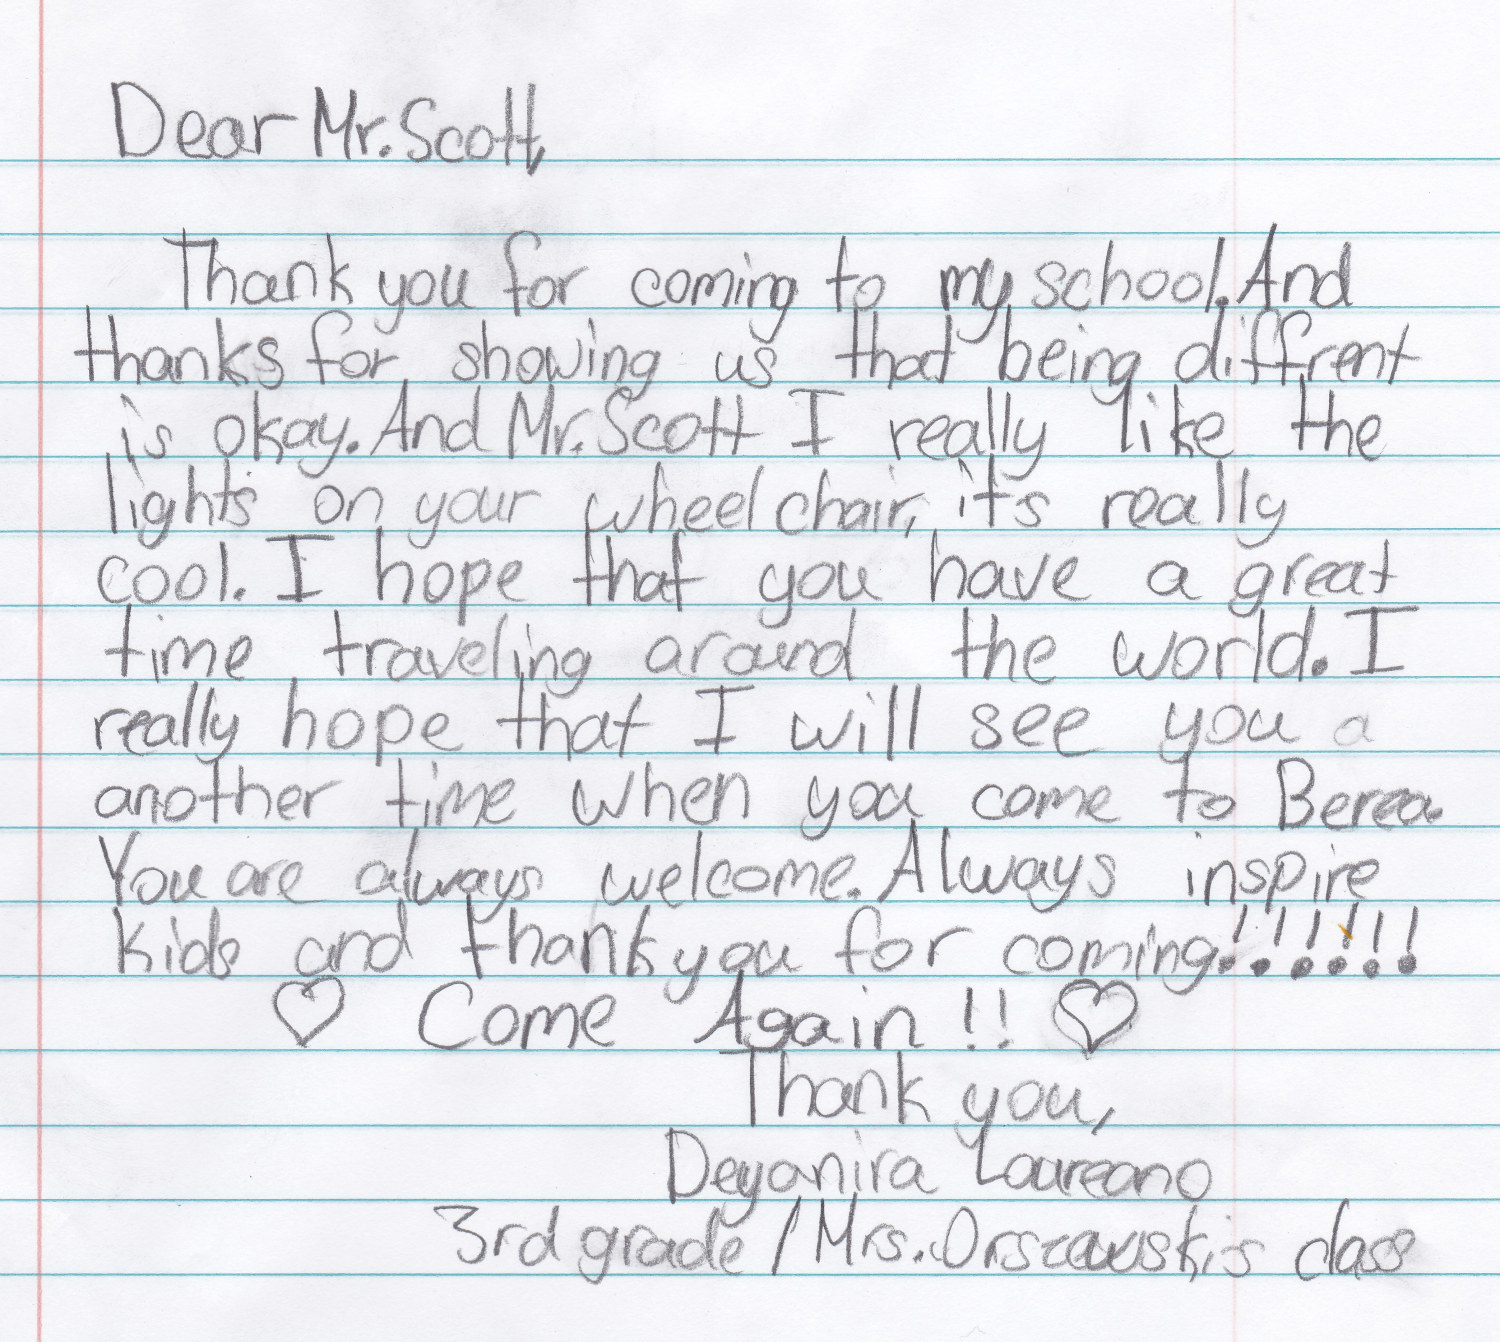 Dear Mr. Scott,
Thank you for coming to my school. And
thanks for showing us that being diffrent
is okay. And Mr. Scott I really like the
lights on your wheel chair, it's really
cool. I hope that you have a great
time traveling around the world. I
really hope that I will see you a
another time when you come to Berea.
You are always welcome. Always inspire
kids and thank you for coming!!!!!!
♡ Come Again!! ♡
Thank you,
Deyanira Laureano
3rd grade / Mrs. Orszewski's class